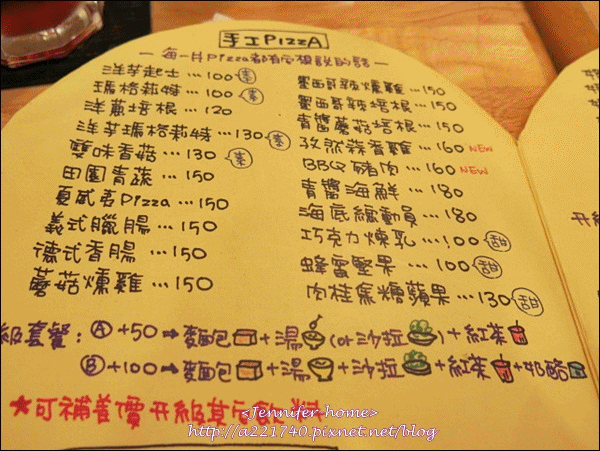 手工PIZZA
一 每一片Pizza都有它想說的話 一
洋芋起士…100 素
瑪格莉特…100 素
洋蔥培根…120
洋芋瑪格莉特…130 素
雙味香菇…130 素
田園青蔬…150
夏威夷Pizza…150
義式臘腸…150
德式香腸…150
蘑菇燻雞…150
墨西哥辣燻雞…150
墨西哥辣培根…150
青醬蘑菇培根…150
孜然蒜香雞…160 NEW
BBQ豬肉…160 NEW
青醬海鮮…180
海底總動員…180
巧克力煉乳…100 甜
蜂蜜堅果…100 甜
肉桂焦糖蘋果…130 甜
級套餐：Ⓐ+50➡麵包+湯(or沙拉)+紅茶
Ⓑ+100➡麵包+湯+沙拉+紅茶+奶酪
★可補差價升級其它飲料
<Jennifer-home>
http://a221740.pixnet.net/blog